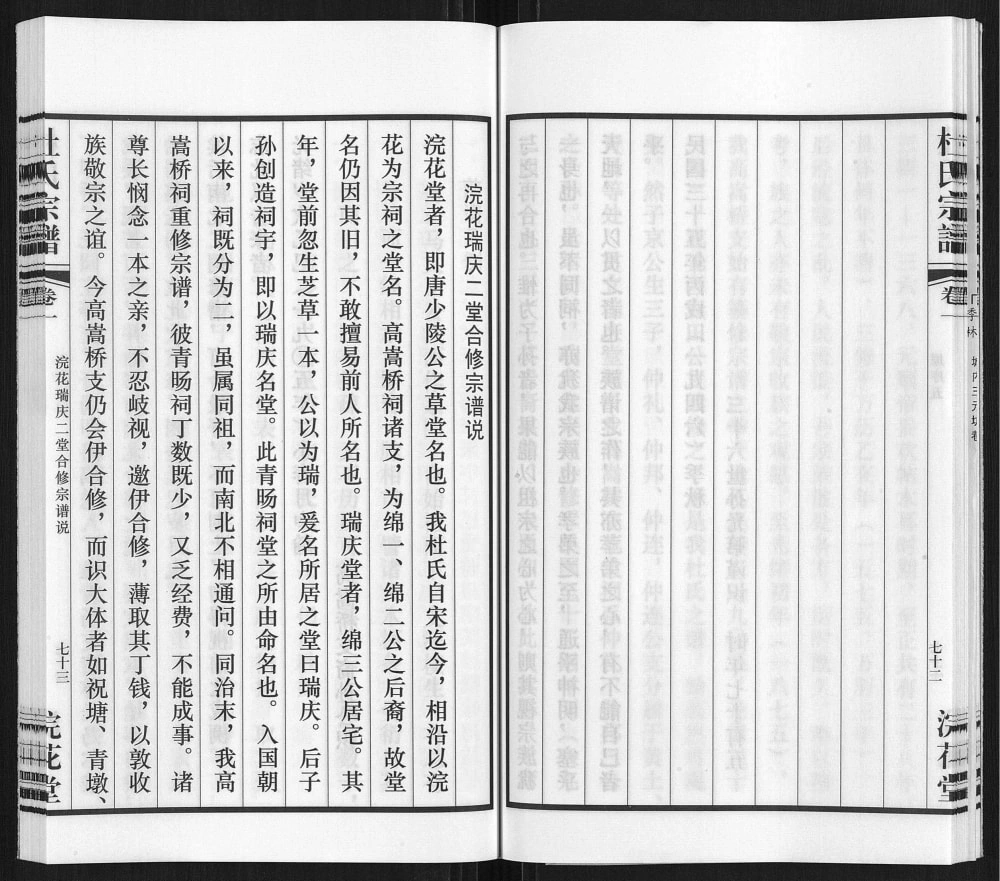 杜氏宗谱
卷一
七十二
浣花堂
浣花瑞庆二堂合修宗谱说
浣花堂者，即唐少陵公之草堂名也。我杜氏自宋迄今，相沿以浣
花为宗祠之堂名。高嵩桥祠诸支，为绵一、绵二公之后裔，故堂
名仍因其旧，不敢擅易前人所名也。瑞庆堂者，绵三公居宅。其
年，堂前忽生芝草一本，公以为瑞，爰名所居之堂曰瑞庆。后子
孙创造祠宇，即以瑞庆名堂。此青旸祠堂之所由命名也。入国朝
以来，祠既分为二，虽属同祖，而南北不相通问。同治末，我高
嵩桥祠重修宗谱，彼青旸祠丁数既少，又乏经费，不能成事。诸
尊长悯念一本之亲，不忍岐视，邀伊合修，薄取其丁钱，以敦收
族敬宗之谊。今高嵩桥支仍会伊合修，而识大体者如祝塘、青墩、
杜氏宗谱
卷一
浣花瑞庆二堂合修宗谱说
七十三
浣花堂